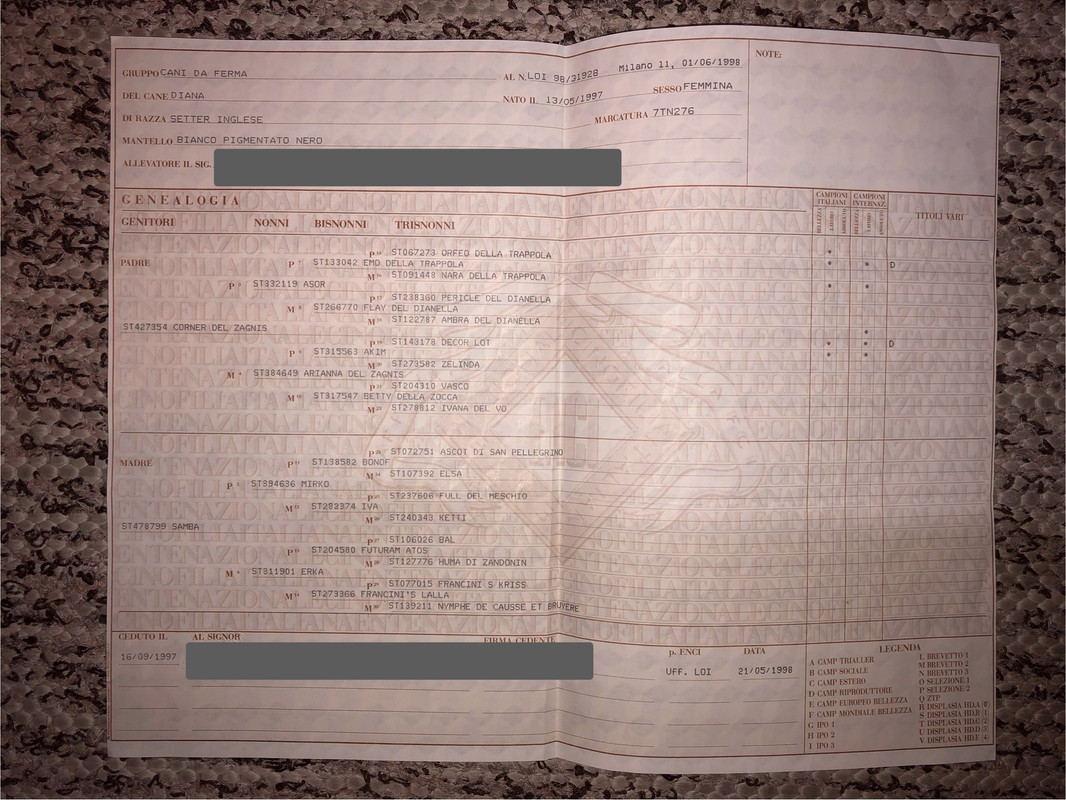 GRUPPO CANI DA FERMA AL N. LOI 98/31928 Milano 11, 01/06/1998 NOTE:
DEL CANE DIANA NATO IL 13/05/1997 SESSO FEMMINA
DI RAZZA SETTER INGLESE MARCATURA 7TN276
MANTELLO BIANCO PIGMENTATO NERO
ALLEVATORE IL SIG.
GENEALOGIA CAMPIONI ITALIANI CAMPIONI INTERNAZ. TITOLI VARI
GENITORI NONNI BISNONNI TRISNONNI BELLEZZA LAVORO BELLEZZA LAVORO
P ST067273 ORFEO DELLA TRAPPOLA *
PADRE P ST133042 EMO DELLA TRAPPOLA * * D
M ST091448 NARA DELLA TRAPPOLA
P ST332119 ASOR * *
P ST238360 PERICLE DEL DIANELLA
M ST266770 FLAY DEL DIANELLA
M ST122787 AMBRA DEL DIANELLA
ST427354 CORNER DEL ZAGNIS *
P ST143178 DECOR LOT * D
P ST315563 AKIM * *
M ST273582 ZELINDA
M ST384649 ARIANNA DEL ZAGNIS
P ST204310 VASCO
M ST317547 BETTY DELLA ZOCCA
M ST278812 IVANA DEL VO
P ST072751 ASCOT DI SAN PELLEGRINO
MADRE P ST138582 BONOF
M ST107392 ELSA
P ST894636 MIRKO
P ST237606 FULL DEL MESCHIO
M ST283374 IVA
M ST240343 KETTI
ST478799 SAMBA
P ST106026 BAL
P ST204580 FUTURAM ATOS
M ST127776 HUMA DI ZANDONIN
M ST811901 ERKA
P ST077015 FRANCINI S KRISS
M ST273366 FRANCINI'S LALLA
M ST139211 NYMPHE DE CAUSSE ET BRUYERE
CEDUTO IL AL SIGNOR FIRMA CEDENTE p. ENCI DATA
16/09/1997 UFF. LOI 21/05/1998
LEGENDA
A CAMP TRIALLER
B CAMP SOCIALE
C CAMP ESTERO
D CAMP RIPRODUTTORE
E CAMP EUROPEO BELLEZZA
F CAMP MONDIALE BELLEZZA
G IPO 1
H IPO 2
I IPO 3
L BREVETTO 1
M BREVETTO 2
N BREVETTO 3
O SELEZIONE 1
P SELEZIONE 2
Q ZTP
R DISPLASIA HD.A (0)
S DISPLASIA HD.B (1)
T DISPLASIA HD.C (2)
U DISPLASIA HD.D (3)
V DISPLASIA HD.E (4)